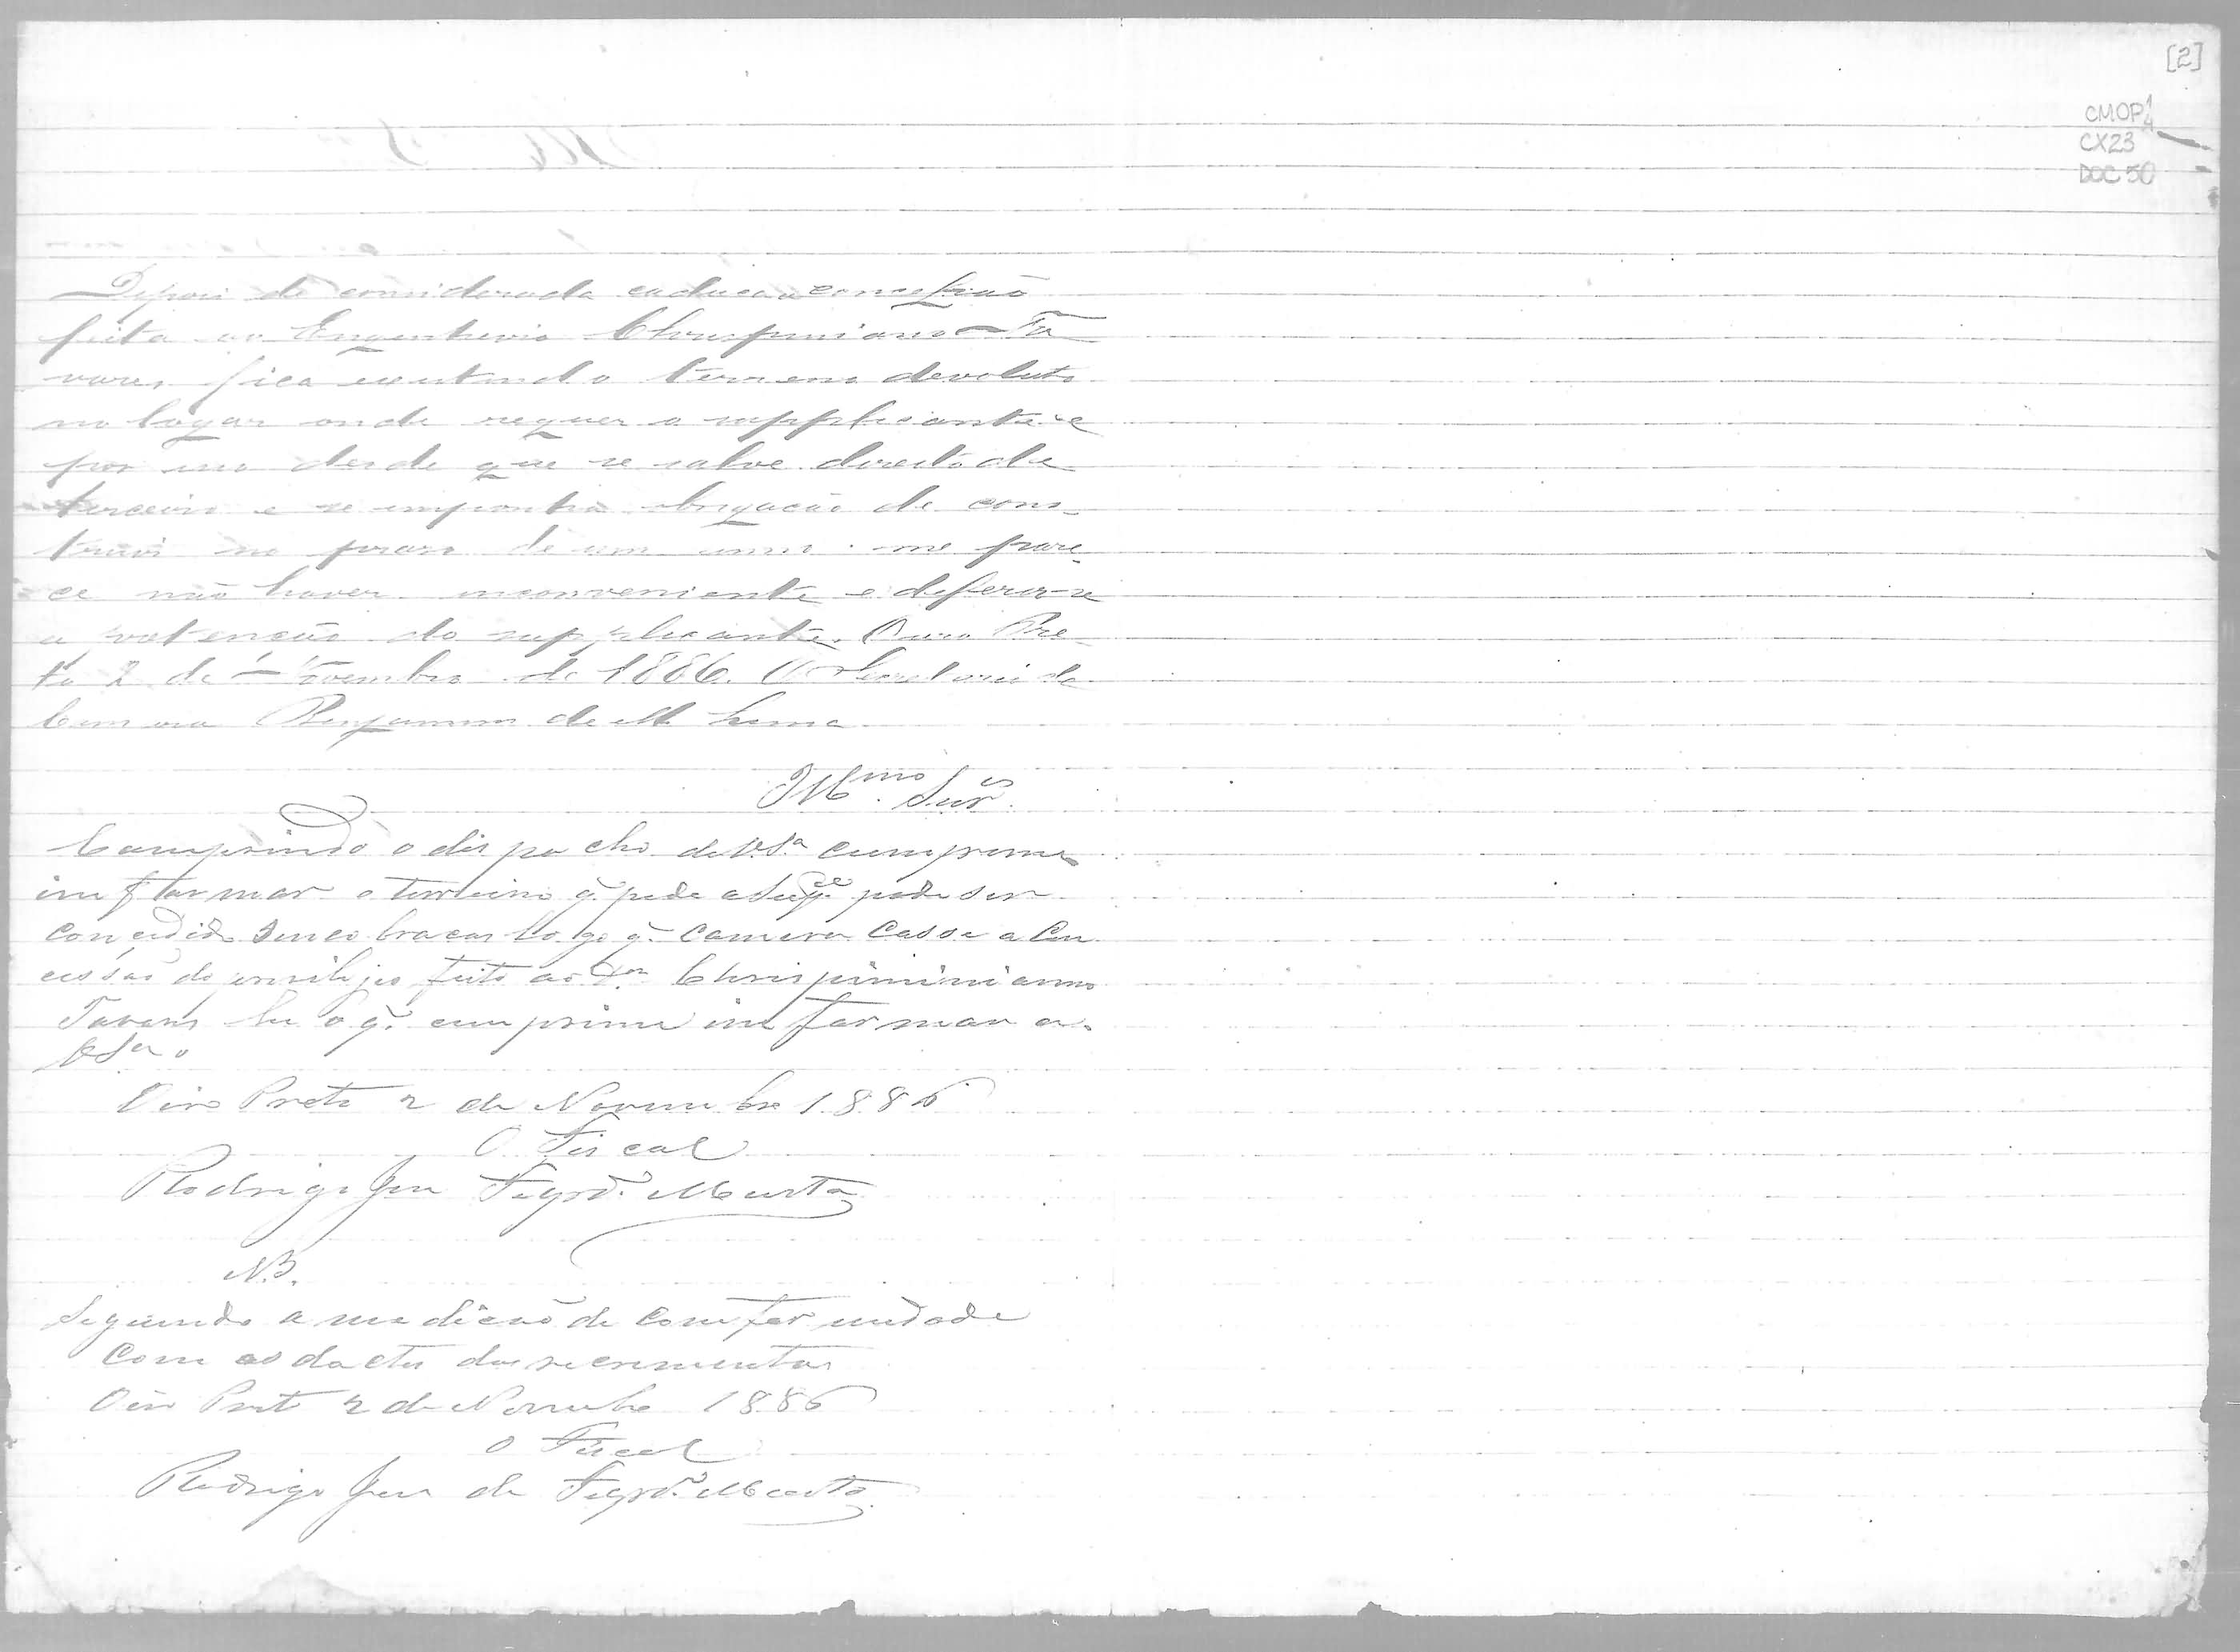 [2]
CMOP 1/4
CX23
DOC 50
Depois de considerada caduca a concessão
feita ao Engenheiro Chrispiniano Ta
vares fica existindo terreno devoluto
no logar onde requer o supplicante e
por isso desde que se salve direito de
terceiro e se imponha obrigação de cons-
truir no praso de um anno me pare-
ce não haver inconveniente e deferir-se
a pretenção do supplicante. Ouro Pre-
to 2 de Novembro de 1886. O Secretario da
Camara Benjamim de M Lima
Illmo. Snr.es
Comprindo o dis pa cho de V.Sa. cumpreme
in formar o terreino q̃. pede o Supe. pode ser
concedido sinco bracas logo q̃. camera casse a con
cessão do previlijio feito ao Dor. Chrispiminianno
Tavares he o q̃. cumprime in formar a
VSa.
Oiro Preto 2 de Novembro 1886
O Fiscal
Rodrigo José Figrdo. Murta
N.B.
Seguindo a medicão de comfor midade
com as dactas
Oiro Preto 2 de Novembro 1886
O Fiscal
Rodrigo José de Figrdo. Murta